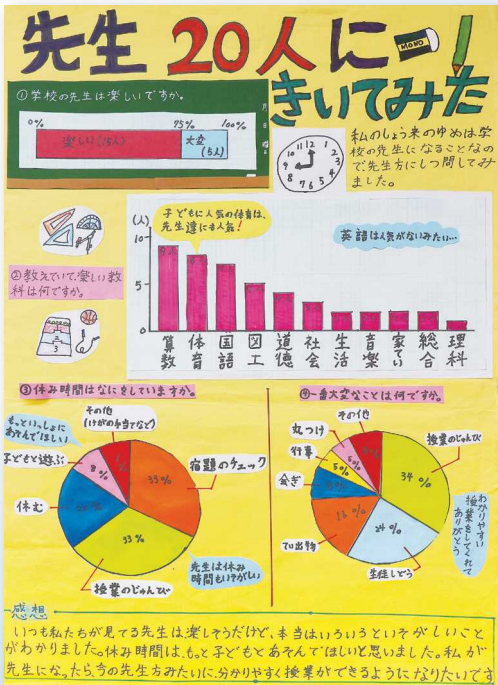 先生 20人に
MONO
きいてみた
①学校の先生は楽しいですか。
0% 75% 100%
楽しい(15人)
大変
(5人)
12 1 2 3 4 5 6 7 8 9 10 11
私のしょう来のゆめは学
校の先生になることなの
で先生方にしつ問してみ
ました。
②教えていて、楽しい教
科は何ですか。
(人)
10
5
0
子どもに人気の体育は、
先生達にも人気!
英語は人気がないみたい…
算数
体育
国語
図工
道徳
社会
生活
音楽
家てい
総合
理科
③休み時間はなにをしていますか。
もっといっしょに
あそんでほしい
その他
(けがの手当てなど)
子どもと遊ぶ
8%
休む
33%
宿題のチェック
33%
授業のじゅんび
先生は休み
時間もいそがしい
④一番大変なことは何ですか。
その他
丸つけ
5%
行事
5%
会ぎ
てい出物
24%
生徒しどう
34%
授業のじゅんび
わかりやすい
授業をしてくれて
ありがとう
感想
いつも私たちが見てる先生は楽しそうだけど、本当はいろいろといそがしいこと
がわかりました。休み時間は、もっと子どもとあそんでほしいと思いました。私が
先生になったら、今の先生方みたいに、分かりやすく授業ができるようになりたいです